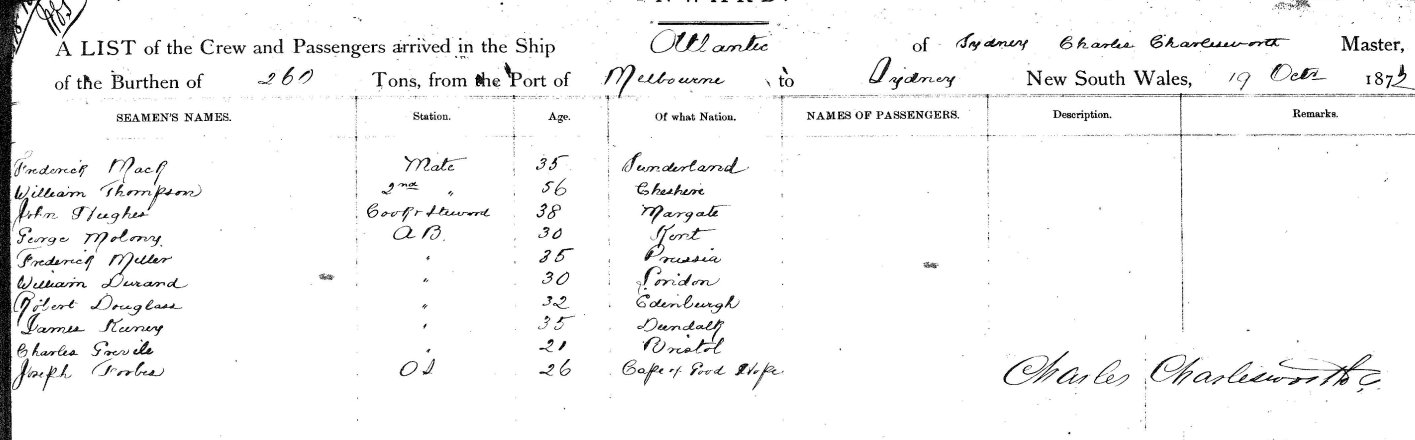 A LIST of the Crew and Passengers arrived in the Ship Atlantic of Sydney Charles Charlesworth Master,
of the Burthen of 260 Tons, from the Port of Melbourne to Sydney New South Wales, 19 Octr 187
SEAMEN'S NAMES. Station. Age. Of what Nation. NAMES OF PASSENGERS. Description. Remarks.
Frederick Mack Mate 35 Sunderland
William Thompson 2nd " 56 Cheshire
John Hughes Cook & Steward 38 Margate
George Molony A B. 30 Kent
Frederick Miller " 35 Prussia
William Durand " 30 London
Robert Douglass " 32 Edenburgh
James Keeney " 35 Dundalk
Charles Grevile " 21 Bristol
Joseph Forbes O S 26 Cape of Good Hope
Charles Charlesworth